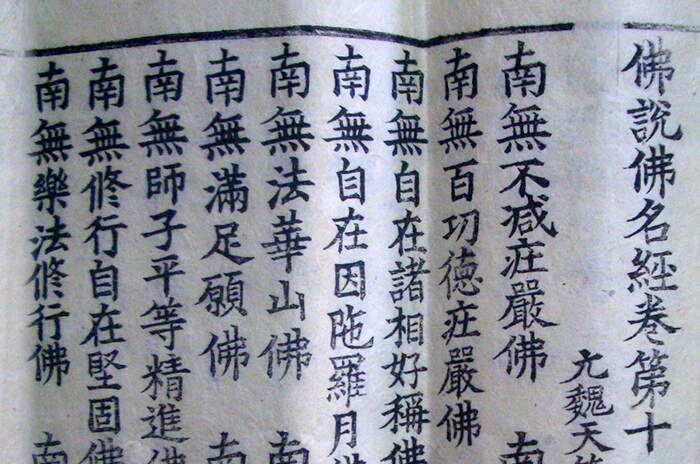 佛說佛名經卷第十
元魏天
南無不减庄嚴佛 南
南無百㓛德庄嚴佛
南無自在諸相好稱佛
南無自在因陁羅月
南無法華山佛 南
南無滿足願佛 南
南無師子平等精進佛
南無修行自在堅固佛
南無樂法修行佛 南